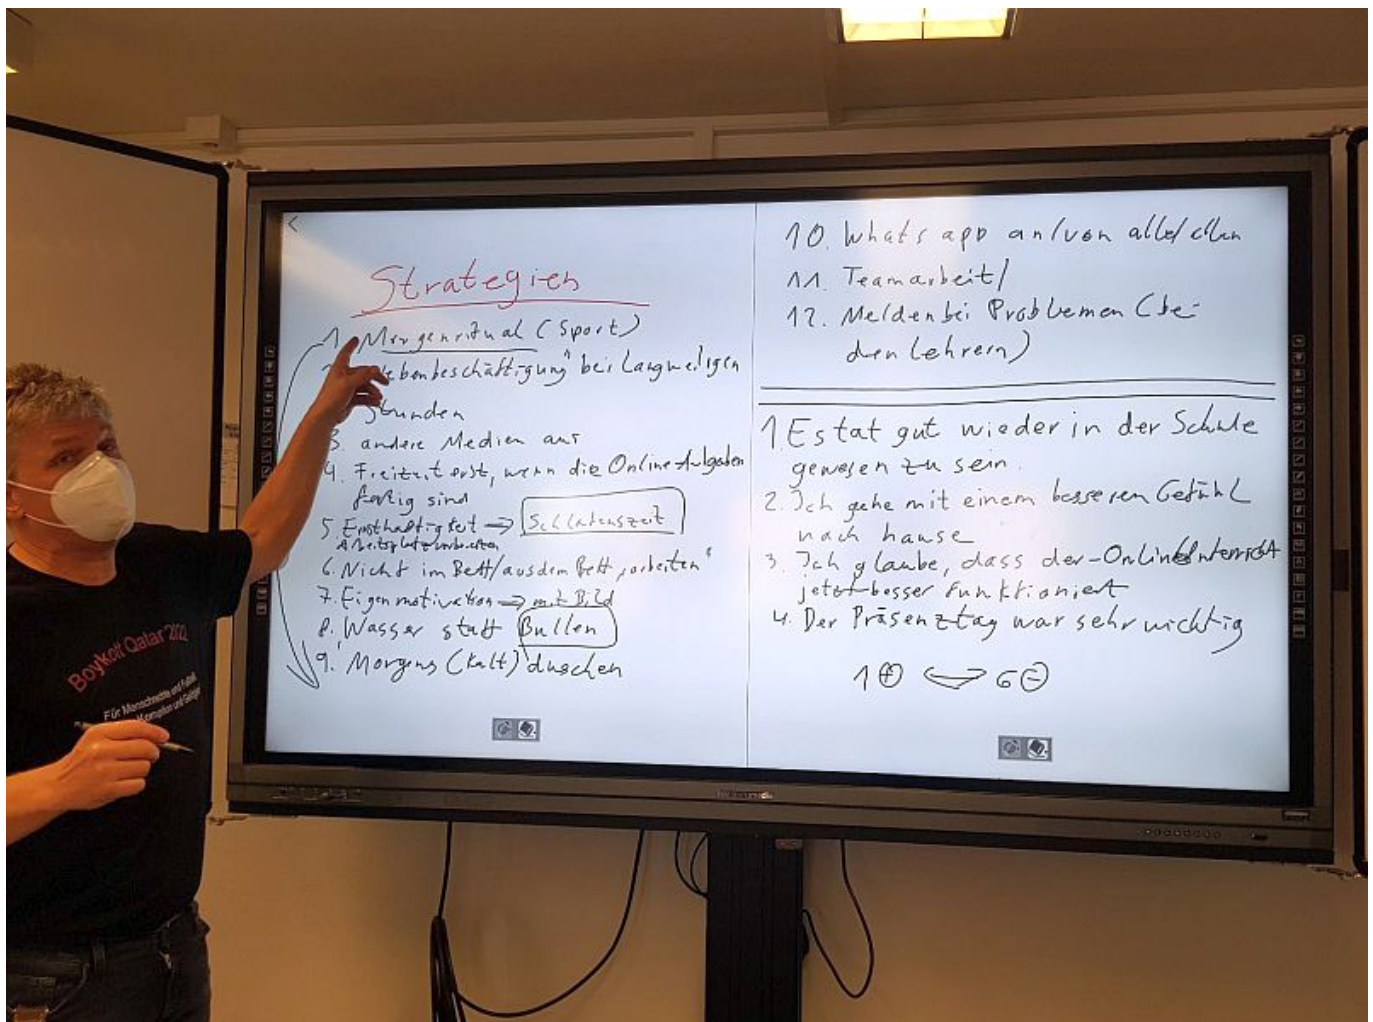 Strategien
1. Morgenritual (Sport)
ebenbeschäftigung" bei Langweiligen
Stunden
3. andere Medien aus
4. Freizeit erst, wenn die Online-Aufgaben
fertig sind
5. Ernsthaftigkeit → Schlafenszeit
Arbeitsplatz vorbereiten
6. Nicht im Bett/aus dem Bett „arbeiten"
7. Eigenmotivation → mit Bild
8. Wasser statt Bullen
9. Morgens (kalt) duschen
10. Whats app an/von alle/allen
11. Teamarbeit/
12. Melden bei Problemen (bei
den Lehrern)
1. Es tat gut wieder in der Schule
gewesen zu sein.
2. Ich gehe mit einem besseren Gefühl
nach hause
3. Ich glaube, dass der Onlineunterricht
jetzt besser funktioniert
4. Der Präsenztag war sehr wichtig
1 + 6 -
Boykott Qatar 2022
Für Menschenrechte und Fußball